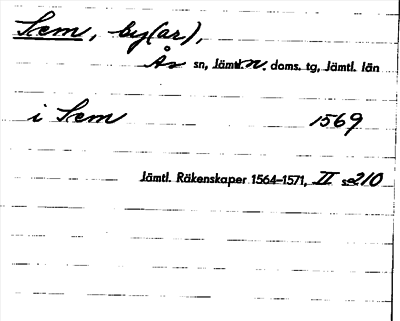 Sem, by(ar),
Ås sn, Jämtl. n. doms. tg, Jämtl. län
i Sem 1569
Jämtl. Räkenskaper 1564–1571, II s 210